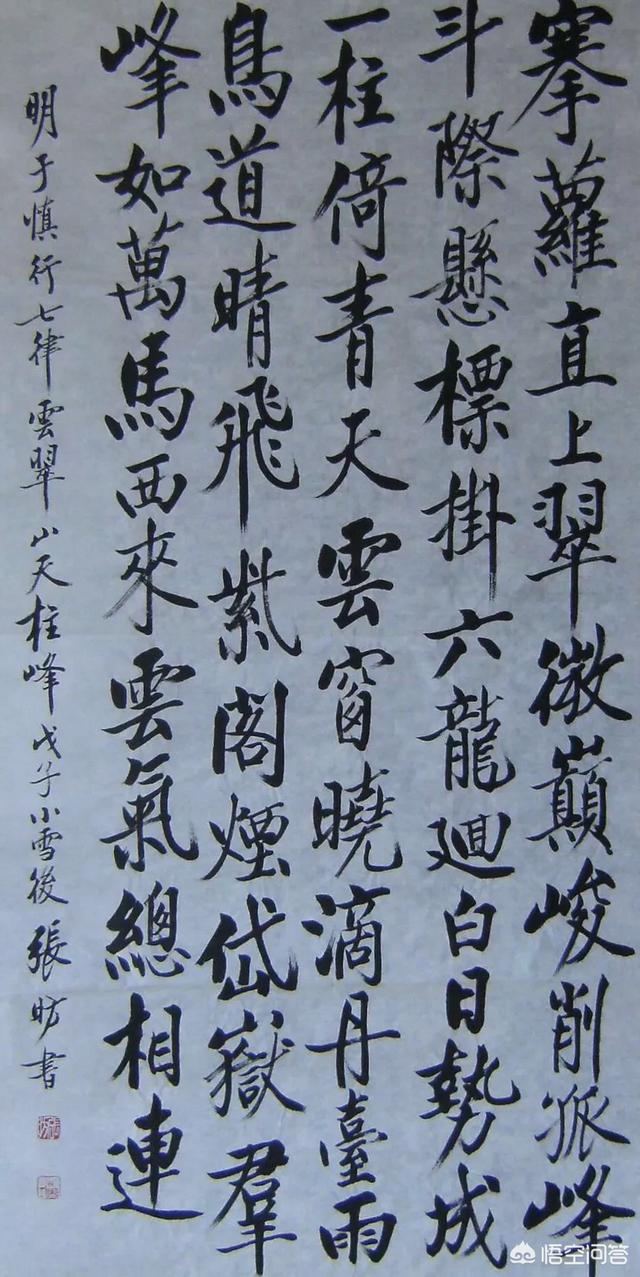 搴蘿直上翠微巔峻削孤峰
斗際懸標掛六龍迴白日勢成
一柱倚青天雲窗曉滴丹臺雨
鳥道晴飛紫閣煙岱嶽羣
峰如萬馬西來雲氣總相連
明于慎行七律雲翠山天柱峰戊子小雪後張昉書
悟空问答